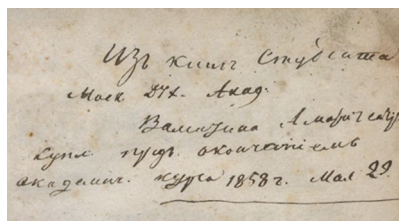 Изъ книгъ Студента
Моск. Дух. Акад.
Валентина
купл. предъ окончаніемъ
академич. курса 1858 г. Мая 29.